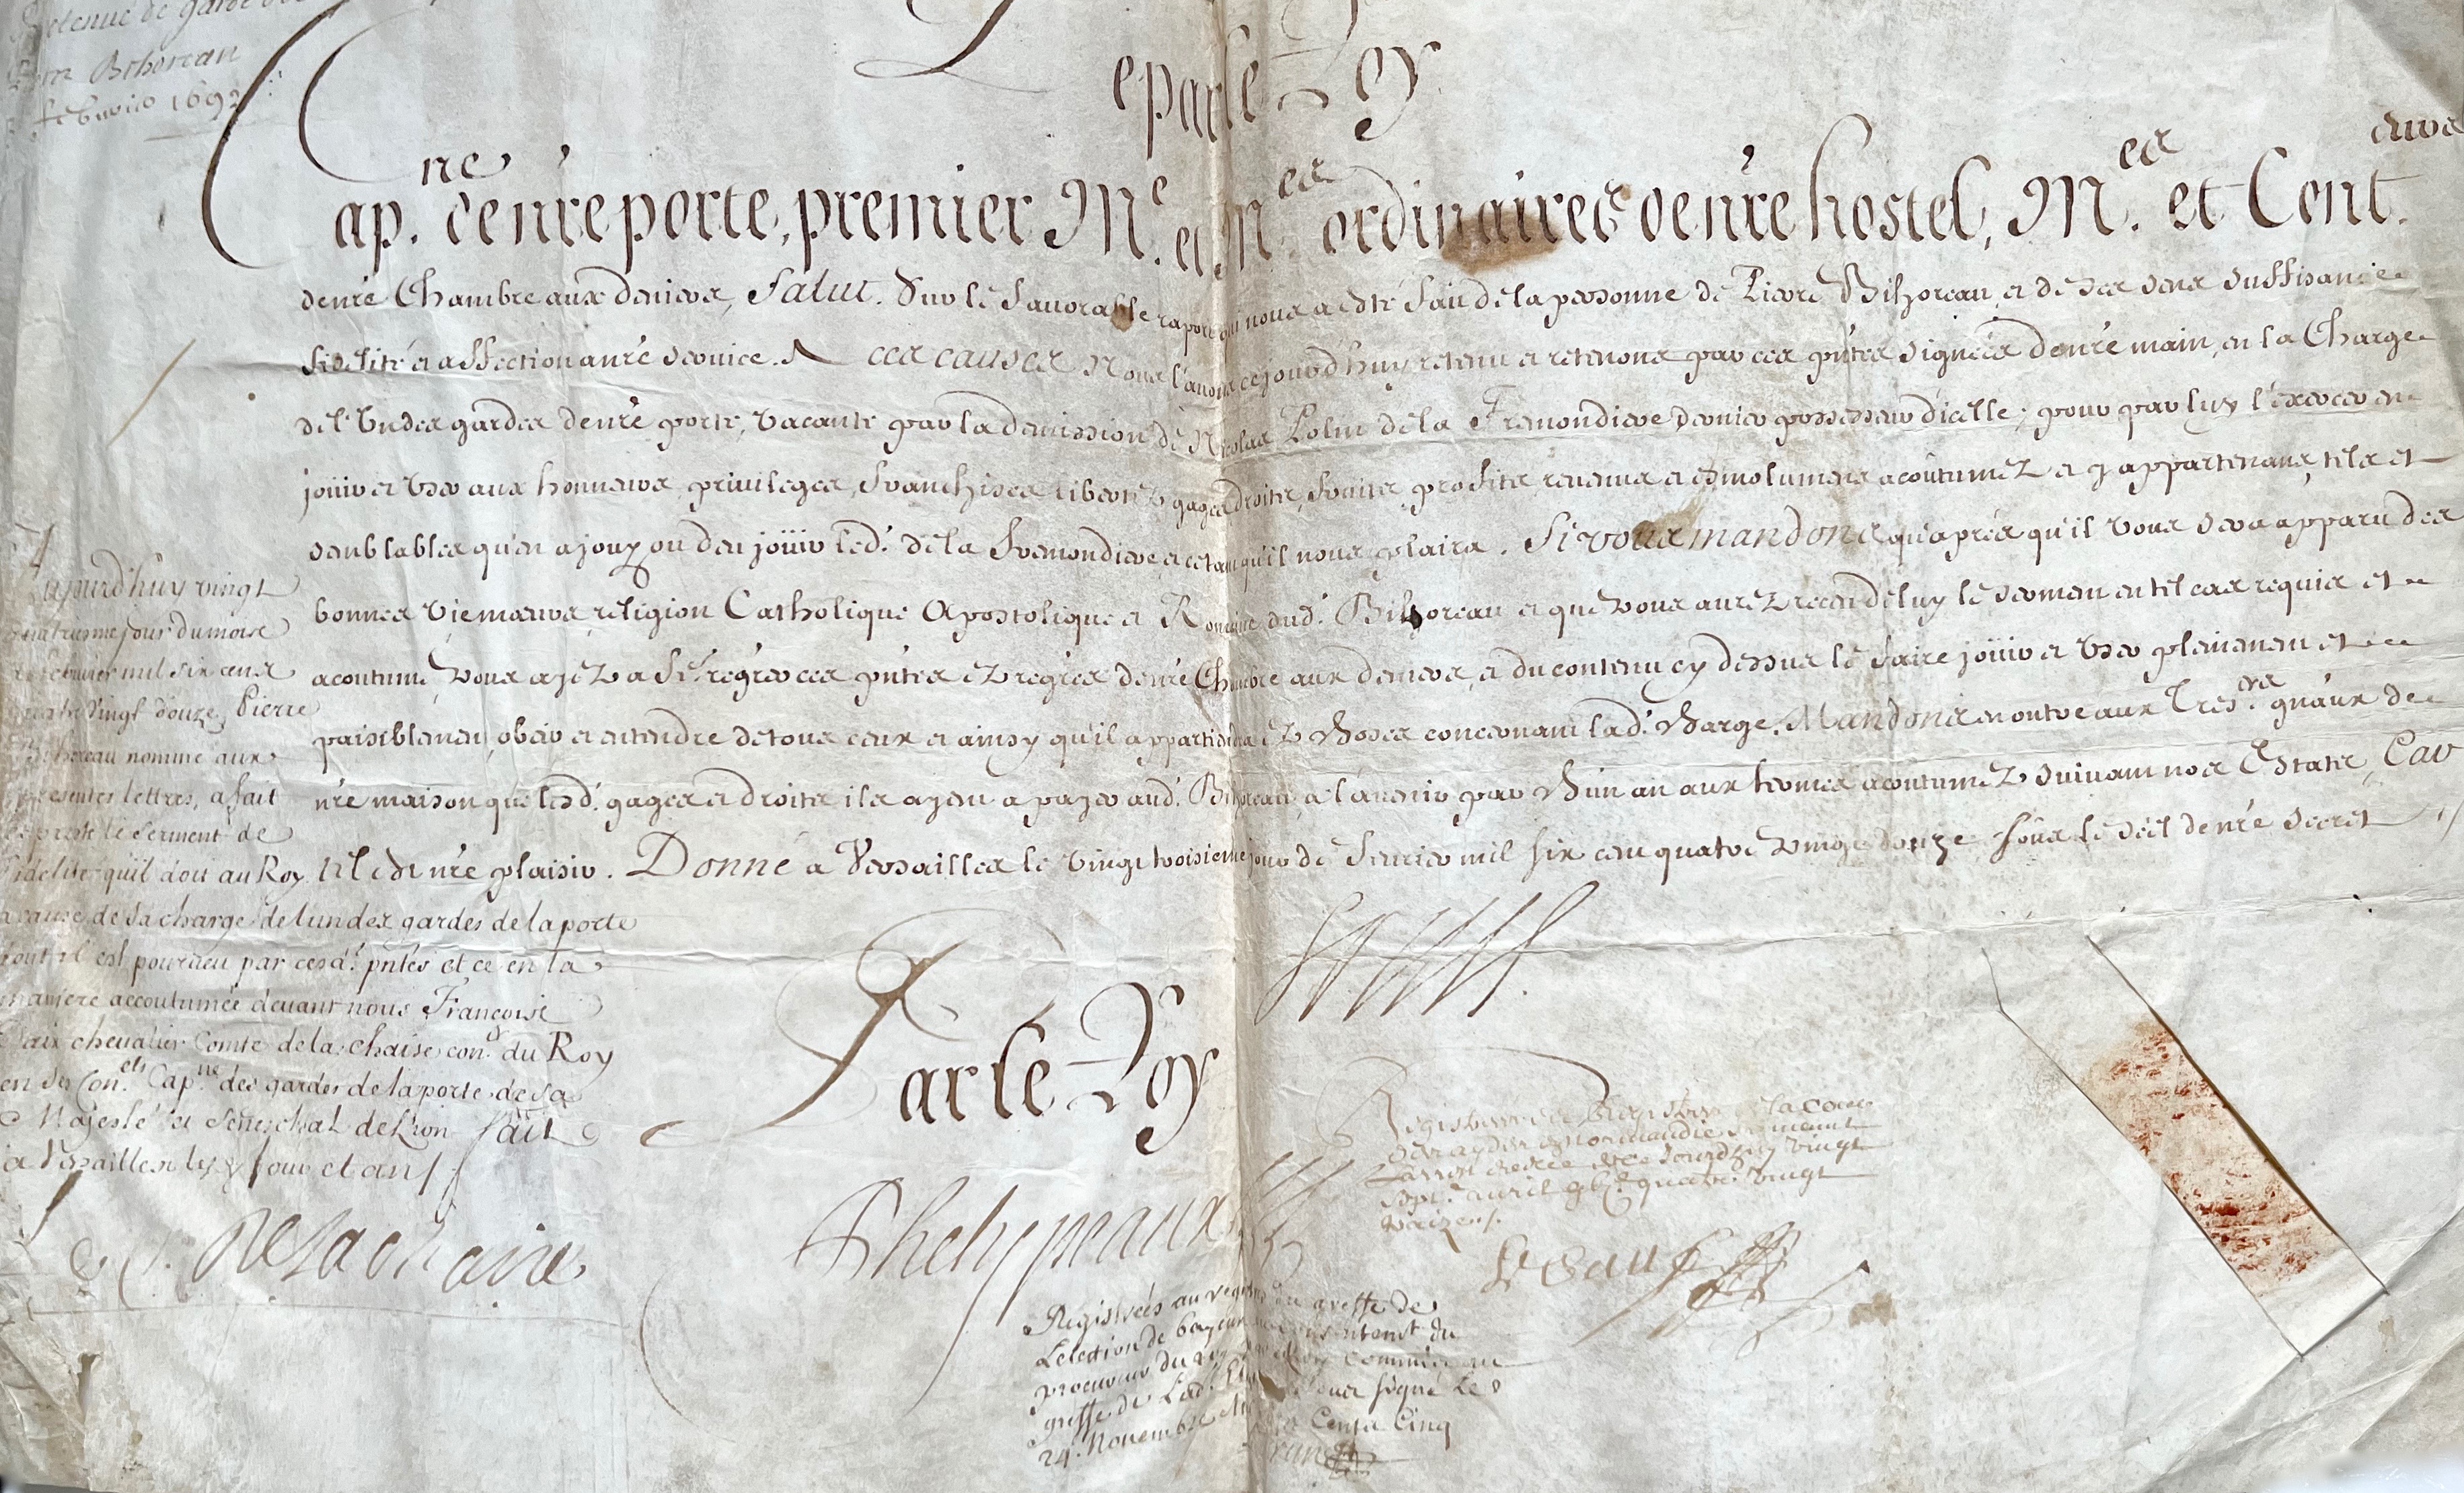 Retenue de garde de
Bihoreau
febvrier 1692
De par le Roy
Cap.ne de nre porte, premier M.e et M.es ordinaires de nre hostel, M.es et Cont.eurs
de nre Chambre aux deniers, Salut. Sur le favorable raport qui nous a esté fait de la personne de Pierre Bihoreau, et de ses sens suffisance
fidelité et affection a nre service. A ces causes Nous l'avons ce jourd'huy retenu et retenons par ces pntes signées de nre main, en la Charge
de l'Un des gardes de nre porte, vacante par la demission de Nicolas Polin de la Fremondiere dernier possesseur d'icelle; pour par luy l'exercer en
jouir et user aux honneurs, privileges, franchises libertez gages, droits, fruits, profits, revenus et esmolumens acoutumez et y appartenans, tels et
semblables qu'en a jouy ou deu jouir led. de la Fremondiere, et ce tant qu'il nous plaira. Si vous mandons qu'apres qu'il vous sera apparu des
bonnes vie mœurs, religion Catholique Apostolique et Romaine dud. Bihoreau et que vous aurez receu de luy le serment en tel cas requis et
acoutumé, vous ayez a f.e regrer ces pntes ez regres de nre Chambre aux deniers, et du contenu cy dessus le faire jouir et user plainement et
paisiblement, obeir et entendre de tous ceux et ainsy qu'il appartiendra ez choses concernant lad. charge. Mandons en outre aux Tres.ers gnaux de
nre maison que lesd. gages et droits ils ayent a payer aud. Bihoreau, a l'avenir par chun an aux termes acoutumez suivant nos Estats, Car
tel est nre plaisir. Donné a Versailles le vingt troisieme jour de fevrier mil six cent quatre vingt douze sous le séel de nre secret
Louis
Aujourd'huy vingt
jour du mois
de febvrier mil six cens
quatre vingt douze, Pierre
Bihoreau nommé aux
presentes lettres, a fait
et presté le serment de
fidelité qu'il doit au Roy
a cause de sa charge de l'un des gardes de la porte
dont il est pourveu par cesd. pntes et ce en la
maniere accoutumée devant nous François
Daix chevalier Comte de la chaise con.er du Roy
en ses Con.els Cap.ne des gardes de la porte de sa
Majesté et Seneschal de Lion fait
a Versailles les jour et an
De la chaise
Par le Roy
Phelypeaux
Registrées au Registre de la Cour
des aydes de Normandie suivant
l'arrest de ce jourd'huy vingt
sept.e avril quatre vingt
treize
Registrées au registre du greffe de
Lelection de bayeux du
procureur du roy commis au
greffe de lad. signé le
24. Novembre Cents Cinq